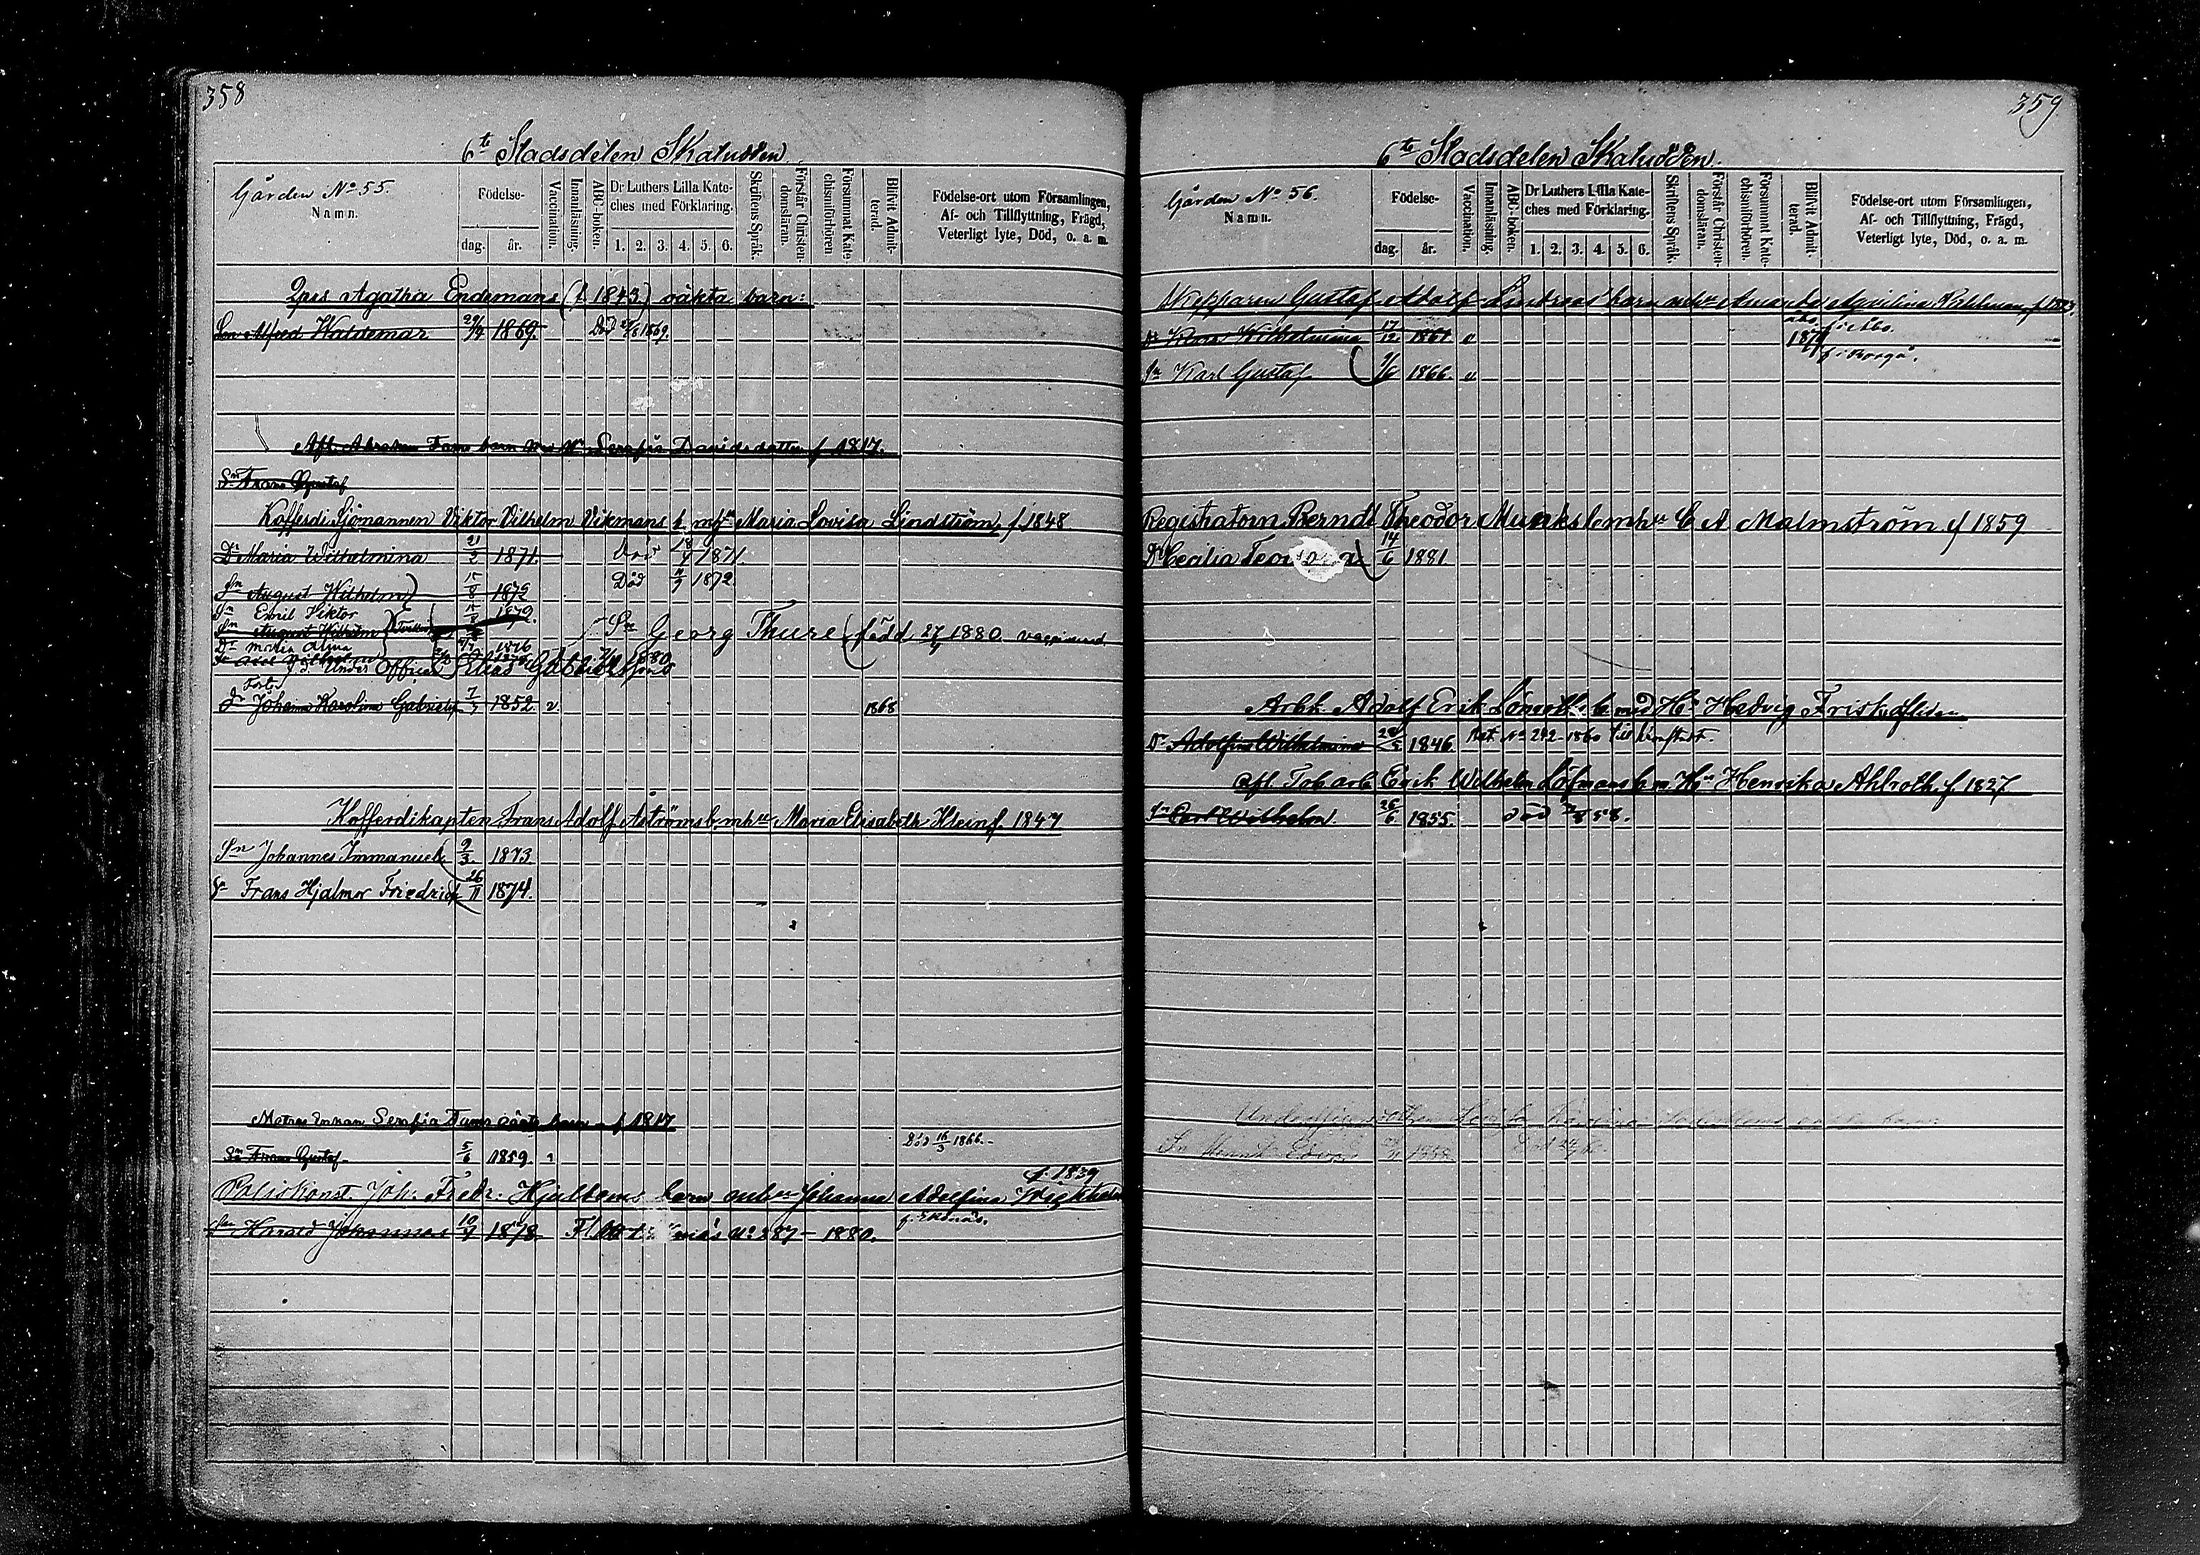 358
6te Stadsdelen Skatudden
Gården No 55.
Namn.
Födelse-
dag. år.
Vaccination.
Innanläsning.
ABC-boken.
Dr Luthers Lilla Kate-
ches med Förklaring.
1. 2. 3. 4. 5. 6.
Skriftens Språk.
Förstår Christen-
domsläran.
Försummat Kate-
chismiförhören
Blifvit Admit-
terad.
Födelse-ort utom Församlingen,
Af- och Tillflyttning, Frägd,
Veterligt lyte, Död, o. a. m.
Agatha Endemans (f. 1843) oäkta barn:
Son Alfred Waldemar 1869. Död 1869.
Serafia Davidsdotter f 1817.
Sn Frans Gustaf
Kofferdi Sjömannen Viktor Vilhelm Vikmans b. mhu Maria Lovisa Lindström, f. 1848
Dr Maria Wilhelmina 21/2 1871. Död 1871.
Sn August Wilhelm 15/8 1872 Död 1872.
Sn Emil Viktor 1879.
Sn Georg Thure född 27/4 1880. vaccinerad
Dr Maria Alina 1876
Under Officer Elias Gabrielsson
Dr Johanna Karolina Gabrielss 7/7 1852. v 1868
Kofferdikapten Frans Adolf Åströms b. mhu Maria Elisabeth Klein f. 1847
Sn Johannes Immanuel 9/3 1873
Sn Frans Hjalmar Friedrich 26/11 1874.
Serafia Fams oäkta barn f 1817
Död 16/3 1866.
Sn Frans Gustaf 5/6 1859.
f. 1839
Poliskonst. Joh. Fredr. Hjultoms barn mhu Johanna Adelfina
f. Ekenäs.
Sn Harald Johannes 10/7 1878 No 387 – 1880.
359
6te Stadsdelen Skatudden.
Gården No 56.
Namn.
Födelse-
dag. år.
Vaccination.
Innanläsning.
ABC-boken.
Dr Luthers Lilla Kate-
ches med Förklaring.
1. 2. 3. 4. 5. 6.
Skriftens Språk.
Förstår Christen-
domsläran.
Försummat Kate-
chismiförhören.
Blifvit Admit-
terad.
Födelse-ort utom Församlingen,
Af- och Tillflyttning, Frägd,
Veterligt lyte, Död, o. a. m.
Skepparen Gustaf Adolf Lindroos barn mhu Amanda
Dr Klara Wilhelmina 17/12 1861 v f. i Åbo.
Sn Karl Gustaf 1866. v f. i Borgå.
Registratorn Berndt Theodor Munks b mhu C A Malmström f 1859
Dr Cecilia 14/6 1881
Arbk Adolf Erik Lönroths b med Hu Hedvig
Dr Adolfina Wilhelmina 1846. Att. No 292 1860 till Kronstadt.
Afl. Tobarb Erik Wilhelm Löfmans b m Hu Henrika Ahlroth f 1827
Sn Carl Wilhelm 26/6 1855. död 58.